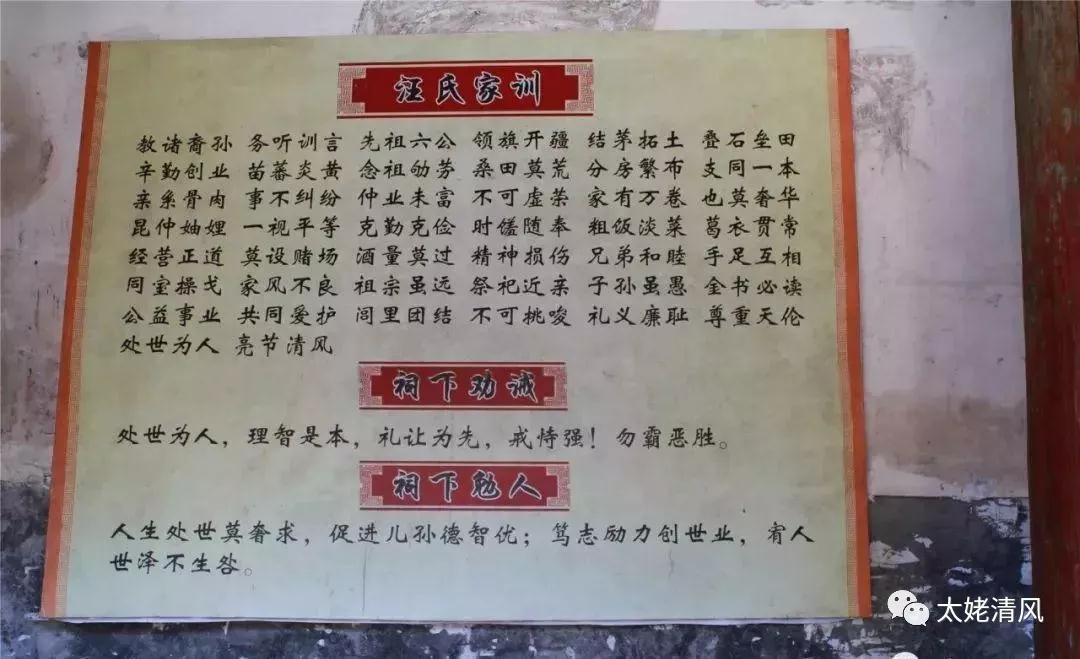 汪氏家训
教诸裔孙 务听训言 先祖六公 领旗开疆 结茅拓土 叠石垒田
辛勤创业 苗蕃炎黄 念祖劬劳 桑田莫荒 分房繁布 支同一本
亲系骨肉 事不纠纷 仲业未富 不可虚荣 家有万卷 也莫奢华
昆仲妯娌 一视平等 克勤克俭 时馐随奉 粗饭淡菜 葛衣贯常
经营正道 莫设赌场 酒量莫过 精神损伤 兄弟和睦 手足互相
同室操戈 家风不良 祖宗虽远 祭祀近亲 子孙虽愚 全书必读
公益事业 共同爱护 闾里团结 不可挑唆 礼义廉耻 尊重天伦
处世为人 亮节清风
祠下劝诫
处世为人，理智是本，礼让为先，戒恃强！勿霸恶胜。
祠下勉人
人生处世莫奢求，促进儿孙德智优；笃志励力创世业，宥人
世泽不生咎。
太姥清风